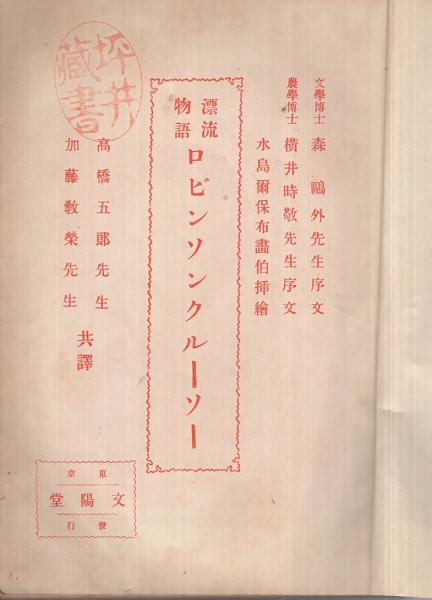 文學博士 森鷗外先生序文
農學博士 橫井時敬先生序文
水島爾保布畵伯挿繪
漂流
物語
ロビンソンクルーソー
高橋五郞先生
加藤敎榮先生
共譯
東京
文陽堂
發行
坪井
藏書